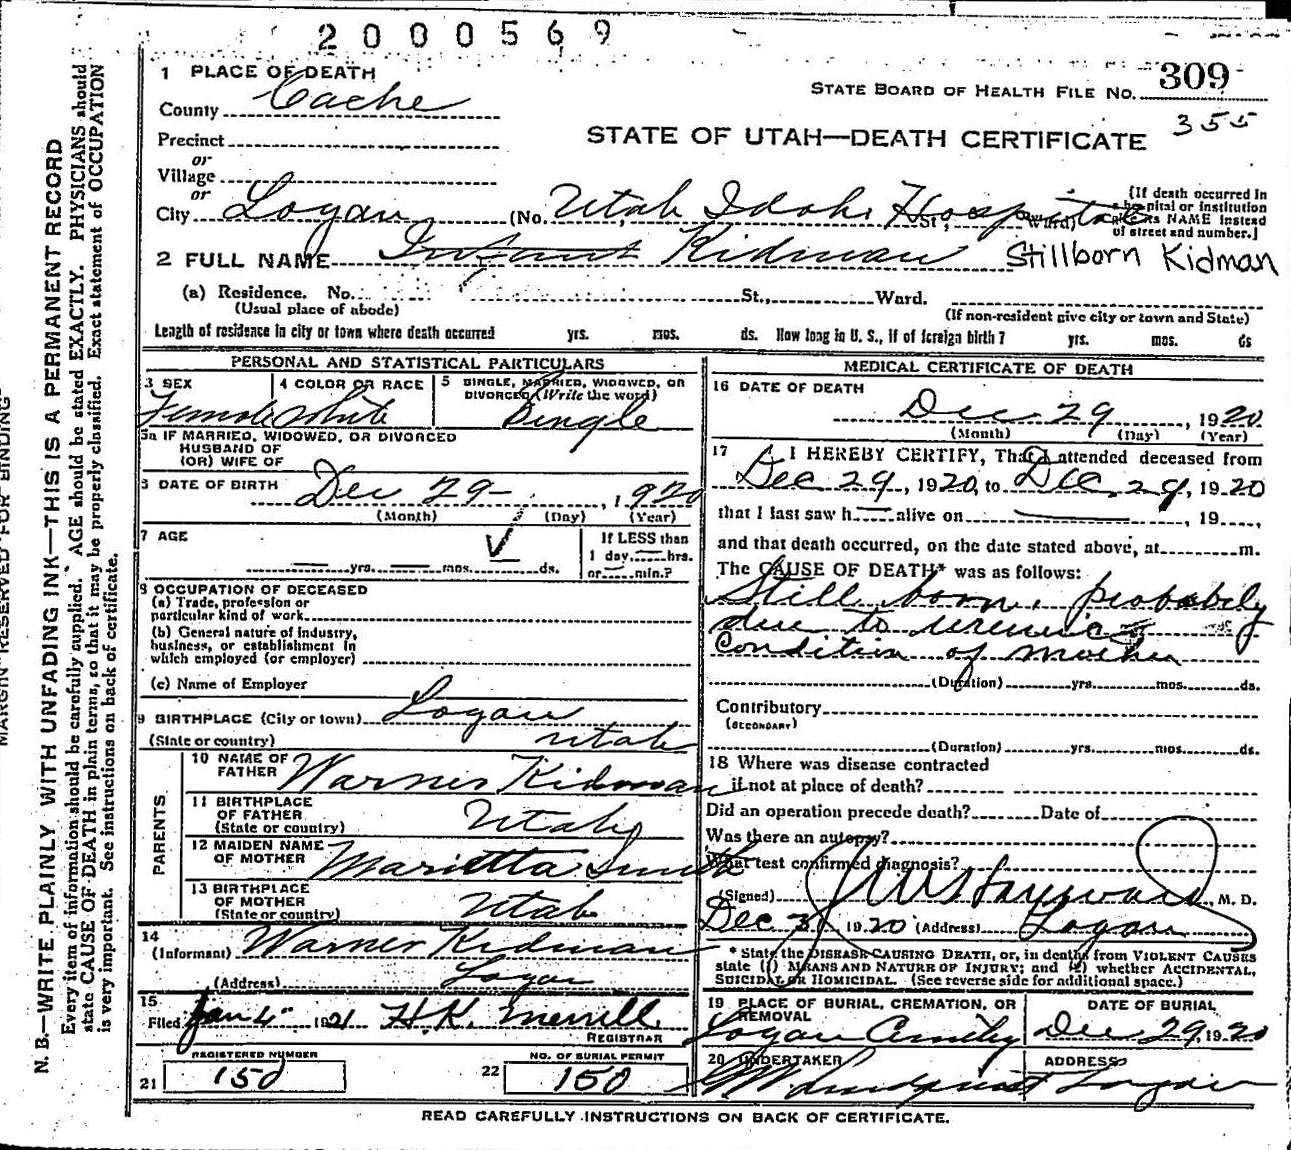 2000569
1 PLACE OF DEATH
STATE BOARD OF HEALTH FILE NO. 309
County Cache
355
STATE OF UTAH—DEATH CERTIFICATE
Precinct
or
Village
or
City Logan (No. Utah Idaho Hospital St., Ward)
[If death occurred in
a hospital or institution
give its NAME instead
of street and number.]
2 FULL NAME Infant Kidman Stillborn Kidman
(a) Residence. No. St., Ward.
(Usual place of abode) (If non-resident give city or town and State)
Length of residence in city or town where death occurred yrs. mos. ds. How long in U. S., if of foreign birth? yrs. mos. ds
PERSONAL AND STATISTICAL PARTICULARS
3 SEX 4 COLOR OR RACE 5 SINGLE, MARRIED, WIDOWED, OR
DIVORCED (Write the word)
Female White Single
5a IF MARRIED, WIDOWED, OR DIVORCED
HUSBAND OF
(OR) WIFE OF
6 DATE OF BIRTH Dec 29 - , 1920
(Month) (Day) (Year)
7 AGE If LESS than
1 day, — hrs.
— yrs. — mos. — ds. or — min.?
8 OCCUPATION OF DECEASED
(a) Trade, profession or
particular kind of work
(b) General nature of industry,
business, or establishment in
which employed (or employer)
(c) Name of Employer
9 BIRTHPLACE (City or town) Logan
(State or country) Utah
PARENTS
10 NAME OF
FATHER Warner Kidman
11 BIRTHPLACE
OF FATHER
(State or country) Utah
12 MAIDEN NAME
OF MOTHER Marietta Smith
13 BIRTHPLACE
OF MOTHER
(State or country) Utah
14
(Informant) Warner Kidman
(Address) Logan
15
Filed Jan 4 1921 H.K. Merrill
REGISTRAR
REGISTERED NUMBER NO. OF BURIAL PERMIT
21 150 22 150
MEDICAL CERTIFICATE OF DEATH
16 DATE OF DEATH
Dec 29, 1920
(Month) (Day) (Year)
17 I HEREBY CERTIFY, That I attended deceased from
Dec 29, 1920, to Dec. 29, 1920
that I last saw h — alive on — , 19 ,
and that death occurred, on the date stated above, at m.
The CAUSE OF DEATH* was as follows:
Still born, probably
due to uremic
condition of mother
(Duration) yrs. mos. ds.
Contributory
(SECONDARY)
(Duration) yrs. mos. ds.
18 Where was disease contracted
if not at place of death?
Did an operation precede death? Date of
Was there an autopsy?
What test confirmed diagnosis?
(Signed) Hayward, M. D.
Dec 31 1920 (Address) Logan
* State the DISEASE CAUSING DEATH, or, in deaths from VIOLENT CAUSES
state (1) MEANS AND NATURE OF INJURY; and (2) whether ACCIDENTAL,
SUICIDAL OR HOMICIDAL. (See reverse side for additional space.)
19 PLACE OF BURIAL, CREMATION, OR
REMOVAL DATE OF BURIAL
Logan Dec 29, 1920
20 UNDERTAKER ADDRESS
Lindquist Logan
READ CAREFULLY INSTRUCTIONS ON BACK OF CERTIFICATE.
MARGIN RESERVED FOR BINDING
N. B.—WRITE PLAINLY WITH UNFADING INK—THIS IS A PERMANENT RECORD
Every item of information should be carefully supplied. AGE should be stated EXACTLY. PHYSICIANS should
state CAUSE OF DEATH in plain terms, so that it may be properly classified. Exact statement of OCCUPATION
is very important. See instructions on back of certificate.